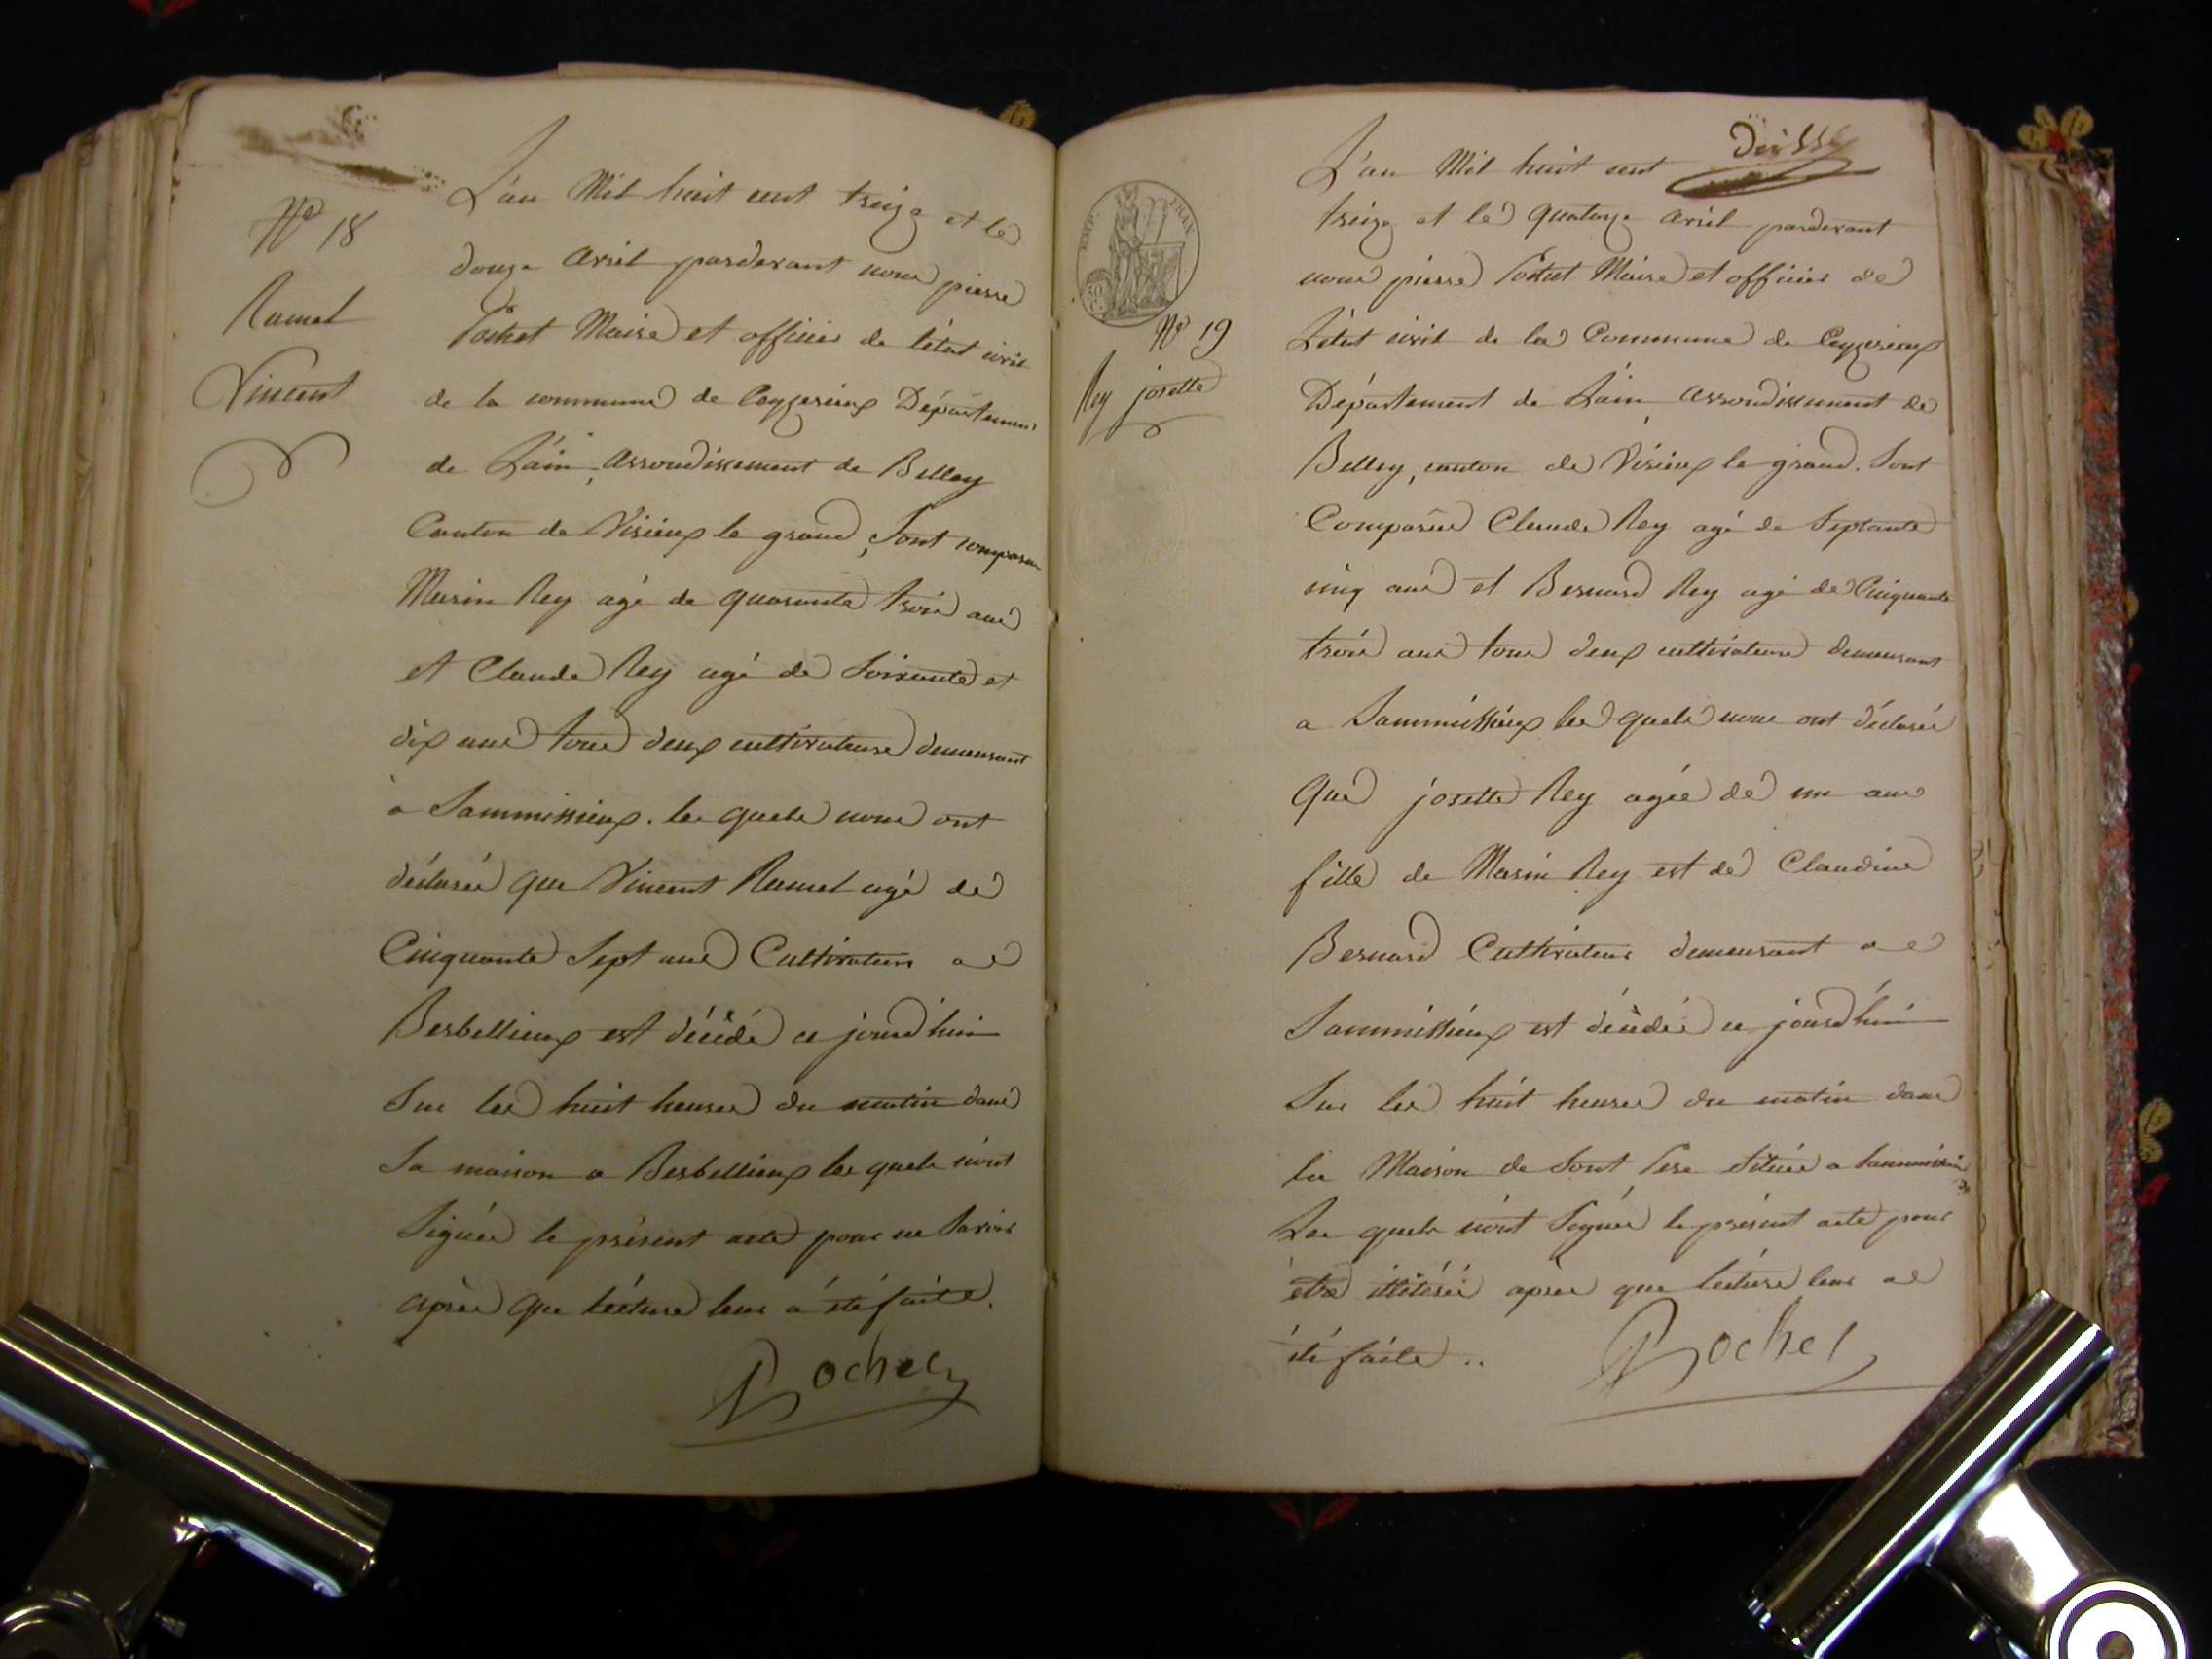 N° 18
Ramel
Vincent
L'an Mil huit cent treize et le
douze avril pardevant nous pierre
Rochet Maire et officier de l'état civil
de la commune de Ceyzerieux Département
de L'ain, arrondissement de Belley
Canton de Virieux le grand, Sont comparu
Marin Rey agé de quarante trois ans
et Claude Rey agé de Soixante et
dix ans tous deux cultivateurs demeurant
à Sammissieux. les quels nous ont
déclarés que Vincent Ramel agé de
Cinquante Sept ans Cultivateur a
Berbellieux est décédé ce jourd'hui
Sur les huit heures du matin dans
Sa maison a Berbellieux les quels n'ont
Signés le présent acte pour ne Savoir
après que lécture leur a été faite.
Rochet
L'an Mil huit cent
treize et le quatorze avril pardevant
nous pierre Rochet Maire et officier de
L'état civil de la Commune de Ceyzerieux
Département de L'ain, arrondissement de
Belley, canton de Virieux le grand. Sont
Comparus Claude Rey agé de Septante
cinq ans et Bernard Rey agé de Cinquante
trois ans tous deux cultivateurs demeurant
a Sammissieux les quels nous ont déclarés
que josette Rey agée de un ans
fille de Marin Rey est de Claudine
Bernard Cultivateur demeurant a
Sammissieux est décédée ce jourd'hui
Sur les huit heures du matin dans
la Maison de Sont Pere Située a Sammissieux
Les quels n'ont Signés le présent acte pour
être illitérés après que lecture leur a
été faite..
Rochet
EMP. FRAN.
50
N° 19
Rey josette